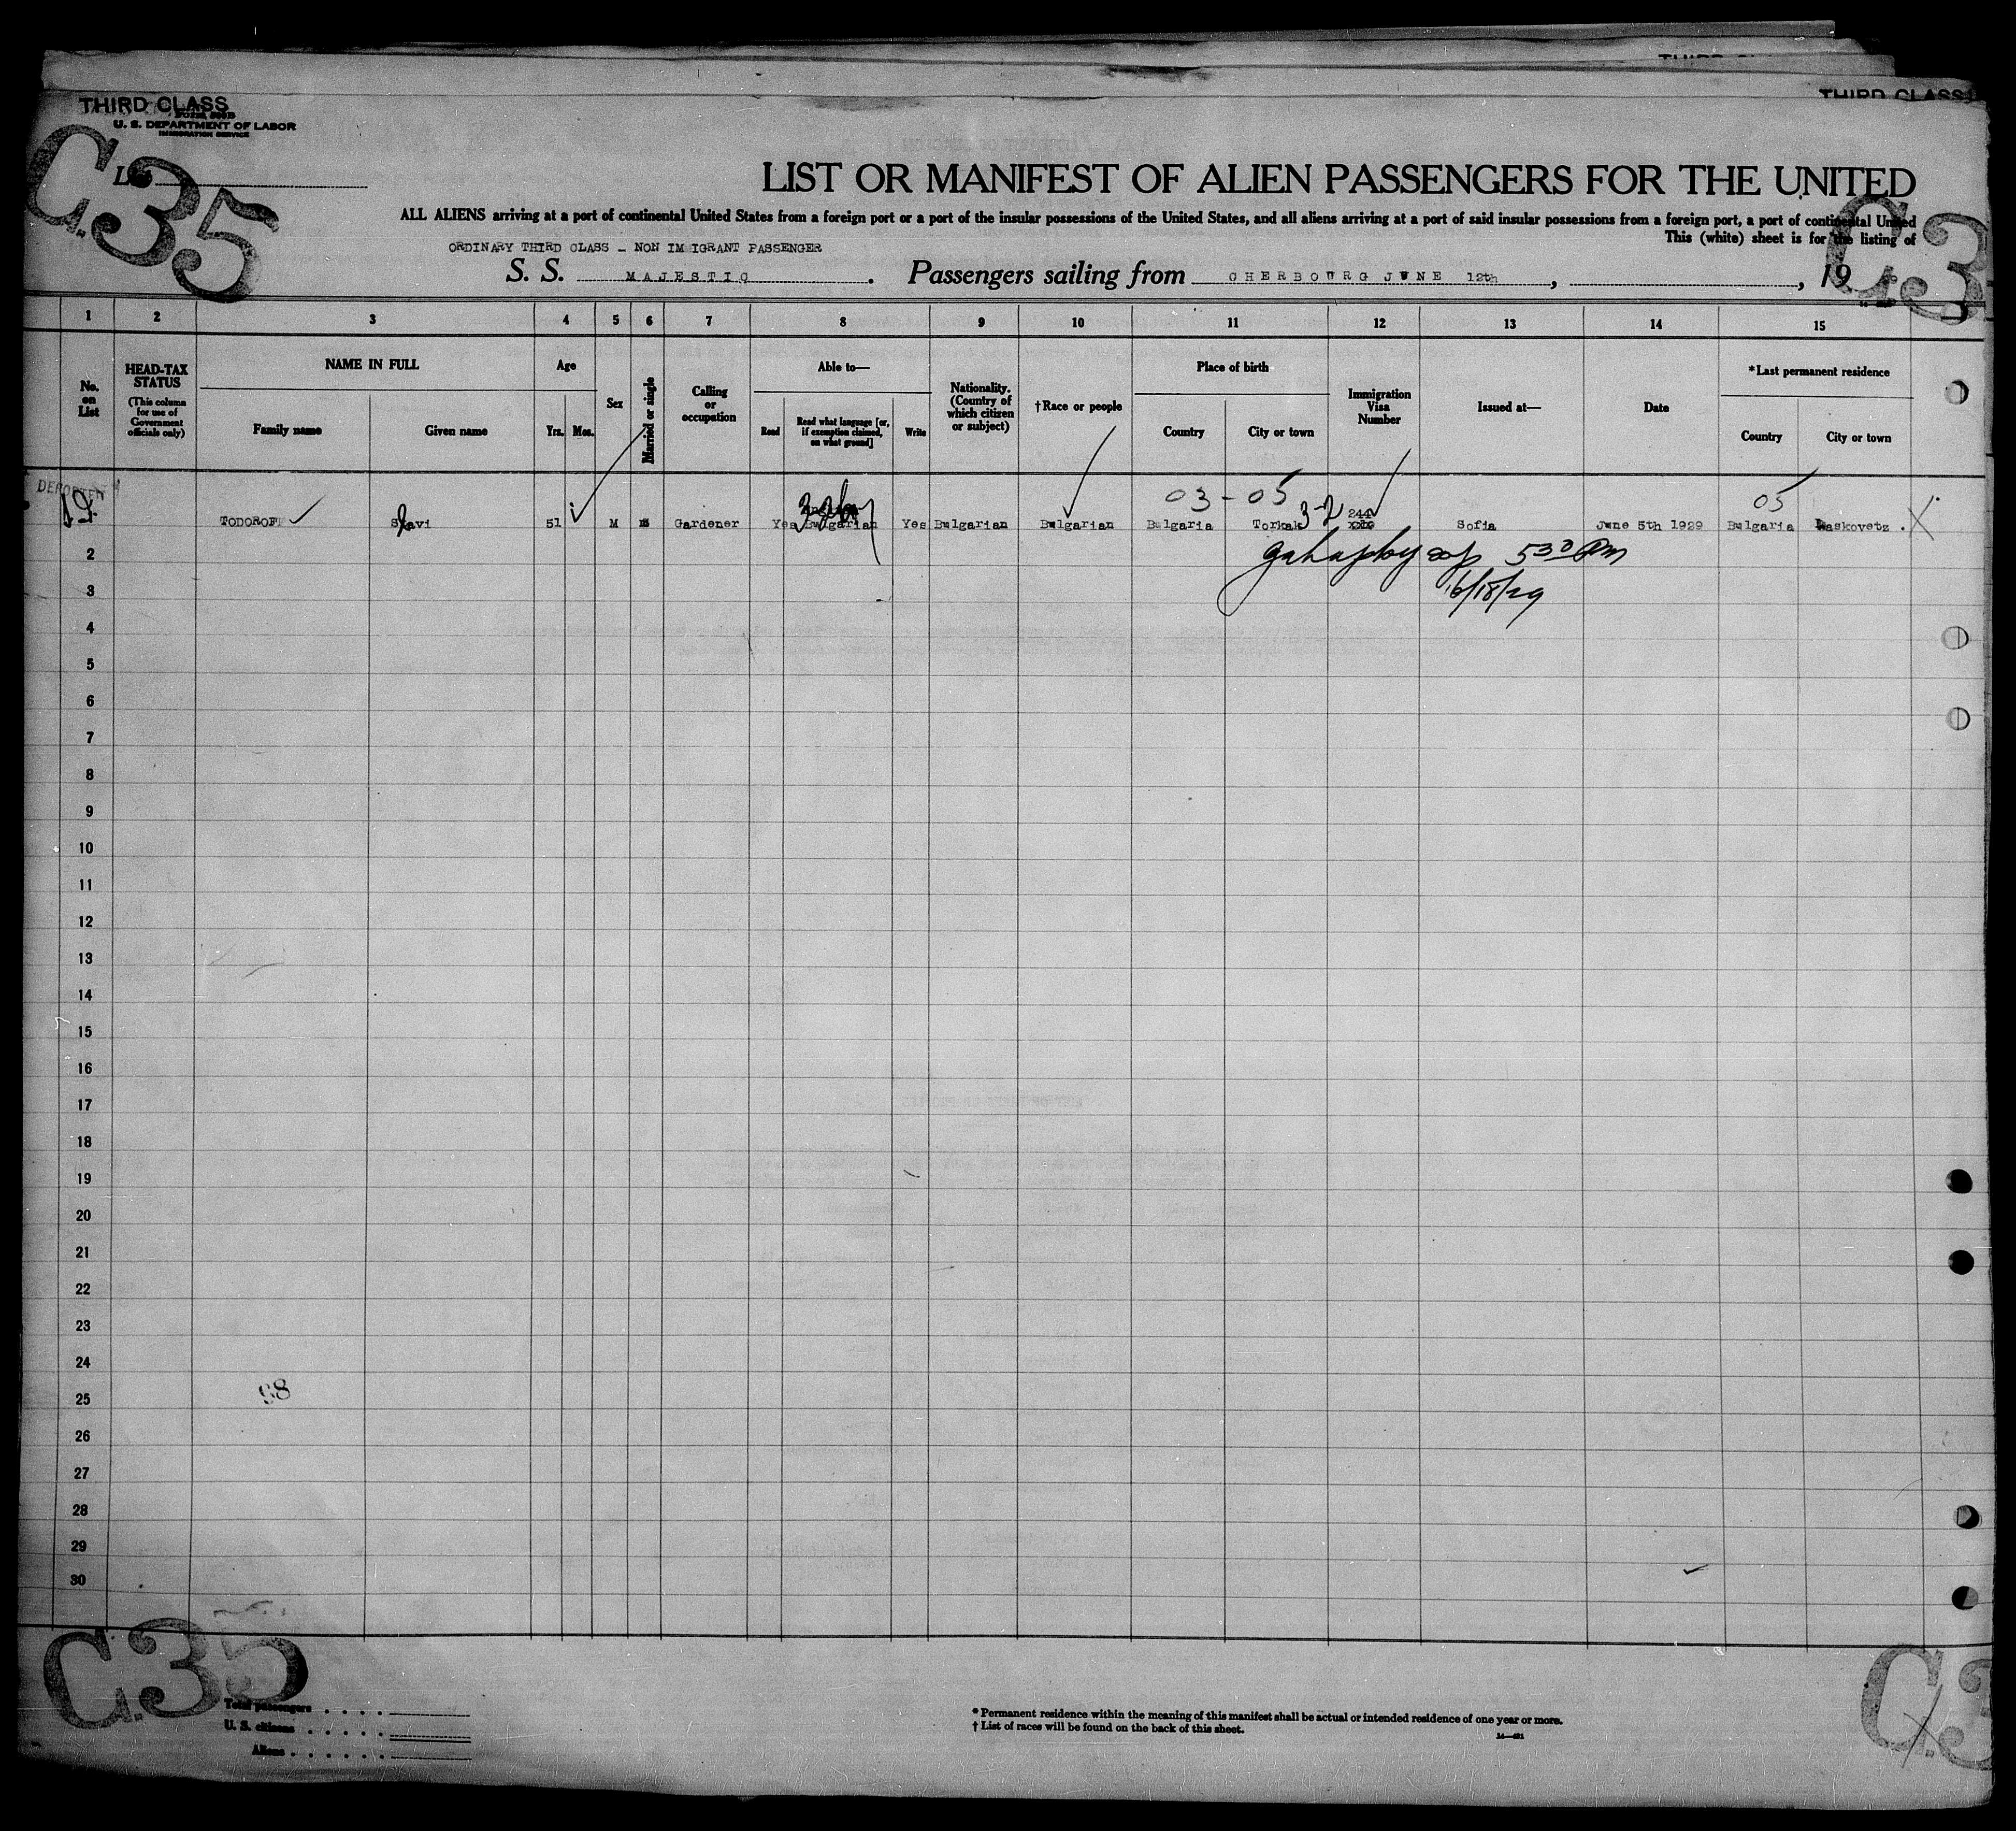 THIRD CLASS
THIRD CLASS
U. S. DEPARTMENT OF LABOR
IMMIGRATION SERVICE
C.35
C.3
LIST OR MANIFEST OF ALIEN PASSENGERS FOR THE UNITED
ALL ALIENS arriving at a port of continental United States from a foreign port or a port of the insular possessions of the United States, and all aliens arriving at a port of said insular possessions from a foreign port, a port of continental United
This (white) sheet is for the listing of
ORDINARY THIRD CLASS - NON IM IGRANT PASSENGER
S. S. MAJESTIC. Passengers sailing from CHERBOURG JUNE 12th, , 19
1 2 3 4 5 6 7 8 9 10 11 12 13 14 15
No. on List
HEAD-TAX STATUS (This column for use of Government officials only)
NAME IN FULL
Family name Given name
Age
Yrs. Mos.
Sex
Married or single
Calling or occupation
Able to—
Read Read what language [or, if exemption claimed, on what ground] Write
Nationality. (Country of which citizen or subject)
†Race or people
Place of birth
Country City or town
Immigration Visa Number
Issued at—
Date
*Last permanent residence
Country City or town
DEPORTED
03 - 05 05
TODOROFF Slavi 51 M Gardener Yes Bulgarian Yes Bulgarian Bulgarian Bulgaria Torkak 3-2 244 Sofia June 5th 1929 Bulgaria Laskovetz . X
530 PM
6/18/29
2
3
4
5
6
7
8
9
10
11
12
13
14
15
16
17
18
19
20
21
22
23
24
25
26
27
28
29
30
C.35
C.3
Total passengers . . . .
U. S. citizens . . . . .
Aliens . . . . . .
* Permanent residence within the meaning of this manifest shall be actual or intended residence of one year or more.
† List of races will be found on the back of this sheet.